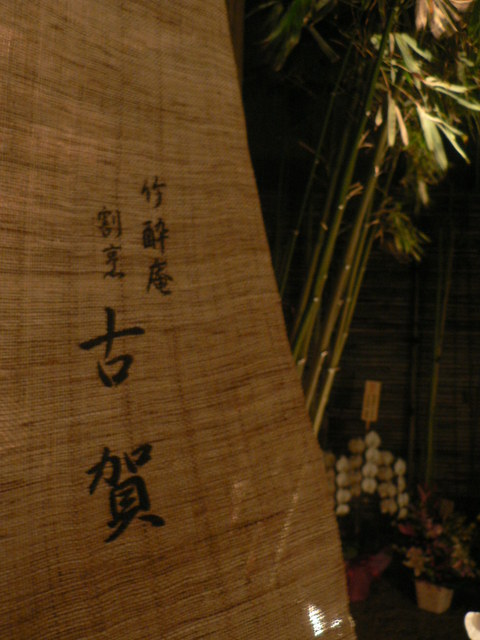 竹酔庵
割烹
古賀